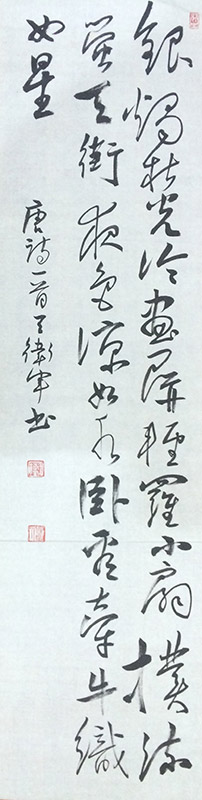 銀燭秋光冷畫屏輕羅小扇撲流
螢天街夜色涼如水卧看牽牛織
女星
唐詩一首王衛軍書